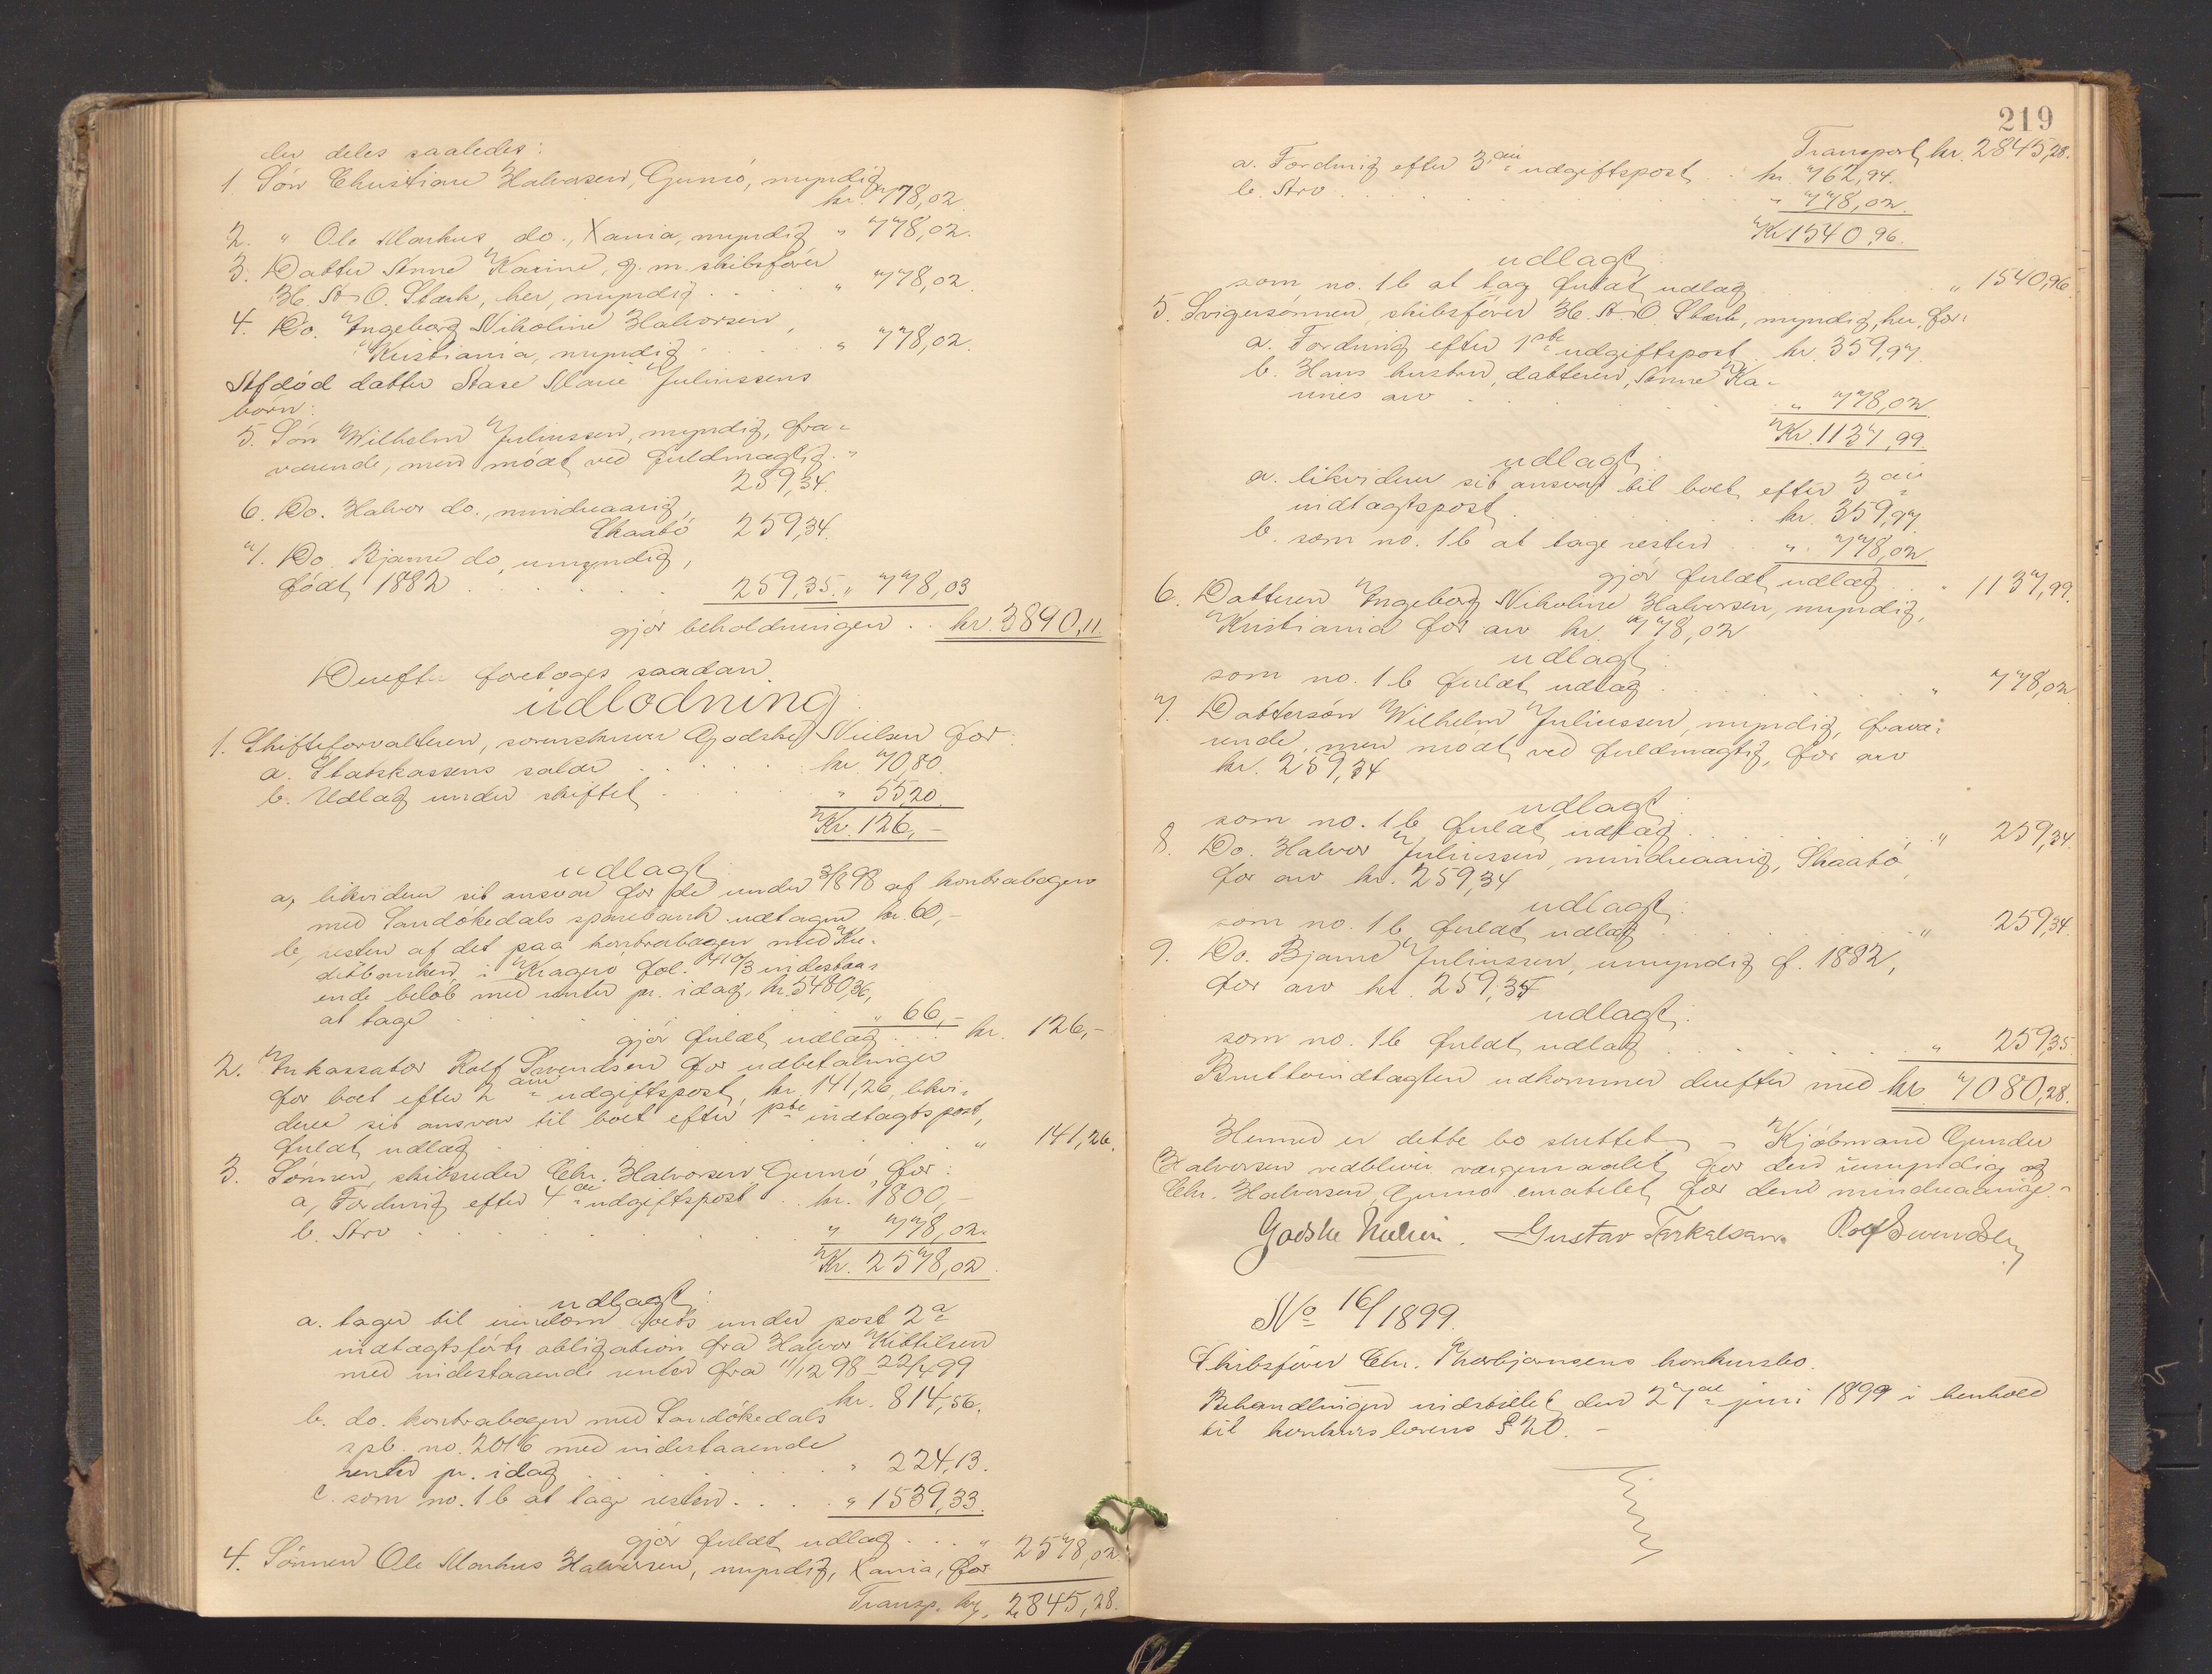 der deles saaledes:
1. Søn Christian Halvorsen, Gumø, myndig
kr. 778,02
2. " Ole Markus do., Xania, myndig " 778,02.
3. Datter Anne Karine, g. m. skibsfører
H. A. O. Stærk, her, myndig . . . " 778,02.
4. Do. Ingeborg Nikoline Halvorsen,
Kristiania, myndig . . . " 778,02.
Afdød datter Aase Marie Juliussens
børn:
5. Søn Wilhelm Juliussen, myndig, fra-
værende, men mødt ved fuldmægtig. "
259,34.
6. Do. Halvor do., mindreaarig,
Skaabø 259,34.
7. Do. Bjarne do, umyndig,
født 1882 . . . 259,35. " 778,03
gjør beholdningen . . kr. 3890,11
Derefter foretoges saadan
udlodning:
1. Skifteforvalteren, sorenskriver Godske Nielsen for:
a. Statskassens saldo . . . kr. 70,80.
b. Udlæg under skiftet . . . " 55,20.
Kr. 126,-
udlagt:
a, likviderer sit ansvar for de under 3/8 98 af kontrabogen
med Sandøkedals sparebank udtagne kr. 60,-
b, resten af det paa kontrabogen med Kre-
ditbanken i Kragerø fol. 710/3 indestaa-
ende beløb med renter pr. idag, kr. 5480,36,
at tage . . . " 66,-
gjør fuldt udlæg . . . kr. 126,-
2. Inkassator Rolf Svendsen for udbetalinger
for boet efter 2den udgiftspost, kr. 141,26, likvi-
derer sit ansvar til boet efter 1ste indtægtspost,
fuldt udlæg . . . " 141,26.
3. Sønnen, skibsreder Chr. Halvorsen, Gumø, for:
a, Fordring efter 4de udgiftspost . . kr. 1800,-
b. Arv . . . " 778,02.
Kr. 2578,02.
udlagt:
a. tager til eiendom boets under post 2
indtægtsførte obligation fra Halvor Kittilsen
med indestaaende renter fra 11/12 98 - 22/4 99
kr. 814,56.
b. do. kontrabogen med Sandøkedals
spb. no. 2016 med indestaaende
renter pr. idag . . . " 224,13.
c. som no. 1 b at tage resten . . . " 1539,33.
gjør fuldt udlæg . . . " 2578,02
4. Sønnen Ole Markus Halvorsen, myndig, Xania, for
Transp. kr. 2845,28.
219
Transport kr. 2845,28.
a. Fordring efter 3die udgiftspost . kr. 762,94.
b. Arv . . . " 778,02.
Kr. 1540,96.
udlagt:
som no. 1 b at tage fuldt udlæg . . . " 1540,96
5. Svigersønnen, skibsfører H. A. O. Stærk, myndig, her, for:
a. Fordring efter 1ste udgiftspost . kr. 359,97.
b. Hans hustru, datteren, Anne Ka-
rines arv . . . " 778,02.
Kr. 1137,99.
udlagt:
a. likviderer sit ansvar til boet efter 3die
indtægtspost . . . kr. 359,97.
b. som no. 1 b at tage resten . . " 778,02
gjør fuldt udlæg . . " 1137,99.
6. Datteren Ingeborg Nikoline Halvorsen, myndig,
Kristiania for arv kr. 778,02
udlagt:
som no. 1 b fuldt udlæg . . . " 778,02
7. Dattersøn Wilhelm Juliussen, myndig, fravæ-
rende, men mødt ved fuldmægtig, for arv
kr. 259,34
udlagt:
som no. 1 b fuldt udlæg . . . " 259,34.
8. Do. Halvor Juliussen, mindreaarig, Skaabø,
for arv kr. 259,34
udlagt:
som no. 1 b fuldt udlæg . . . " 259,34.
9. Do. Bjarne Juliussen, umyndig f. 1882,
for arv kr. 259,35
udlagt:
som no. 1 b fuldt udlæg . . . " 259,35.
Bruttoindtægten udkommer derefter med kr. 7080,28.
Hermed er dette bo sluttet. - Kjøbmand Gunder
Halvorsen vedbliver værgemaalet for den umyndige og
Chr. Halvorsen, Gumø kuratelet for den mindreaarige. -
Godske Nielsen. Gustav Terkelsen. Rolf Svendsen
No 16/1899.
Skibsfører Chr. Thorbjørnsens konkursbo.
Behandlingen indstillet den 27de juni 1899 i henhold
til konkurslovens § 20. -